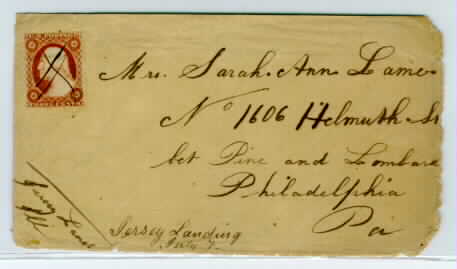 Mrs. Sarah Ann Lame
No 1606 Helmuth St
bet Pine and Lombard
Philadelphia
Pa
Jersey Landing
Ill
Jersey Landing
July